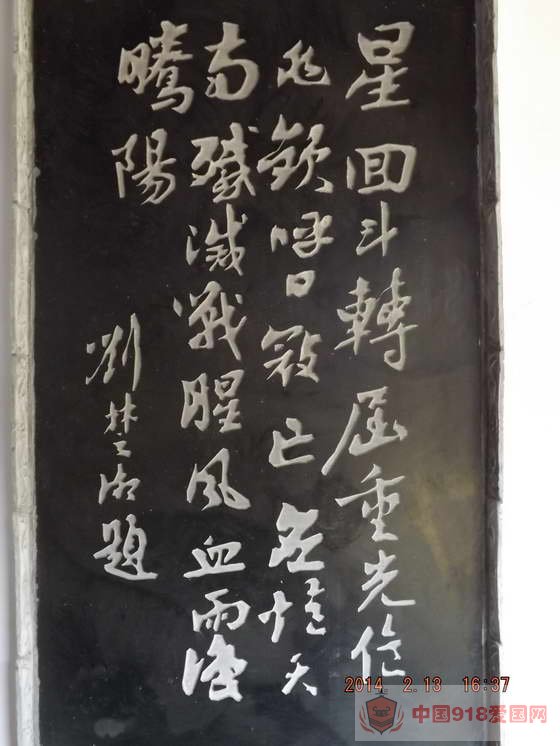 星回斗轉屆重光億
兆歡呼日寇亡憶天
南殲滅戰腥風血雨
騰陽
劉楚湘題
2014 2.13 16:37
中国918爱国网